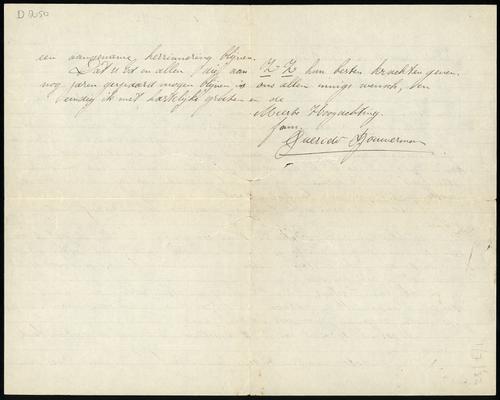 D 2050
een aangename herrinnering blijven.
Dat U Ed en allen die aan Z-Z hun besten krachten geven
nog jaren gespaard mogen blijven is ons allen innige wensch, den
eindig ik met hartelijke groeten en de
Meeste Hoogachting.
fam.
Querido Bouwerman